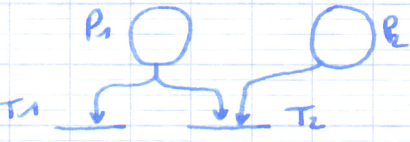 P1 P2
T1 T2